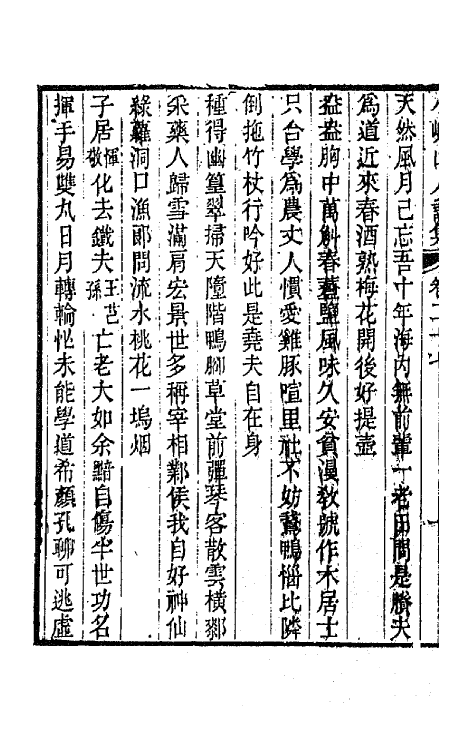 天然風月已忘吾十年海內無前輩一老田間是勝夫
爲道近來春酒熟梅花開後好提壺
盎盎胸中萬斛春虀鹽風味久安貧漫敎號作木居士
只合學爲農丈人慣愛雞豚喧里社不妨鵞鴨惱比隣
倒拖竹杖行吟好此是堯夫自在身
種得幽篁翠掃天隨階鴨腳草堂前彈琴客散雲橫𡼏
采藥人歸雪滿肩宏景世多稱宰相鄴侯我自好神仙
綠蘿洞口漁郞問流水桃花一塢烟
子居惲敬化去鐵夫王芑孫亡老大如余黯自傷半世功名
揮手易雙丸日月轉輪忙未能學道希顏孔聊可逃虛